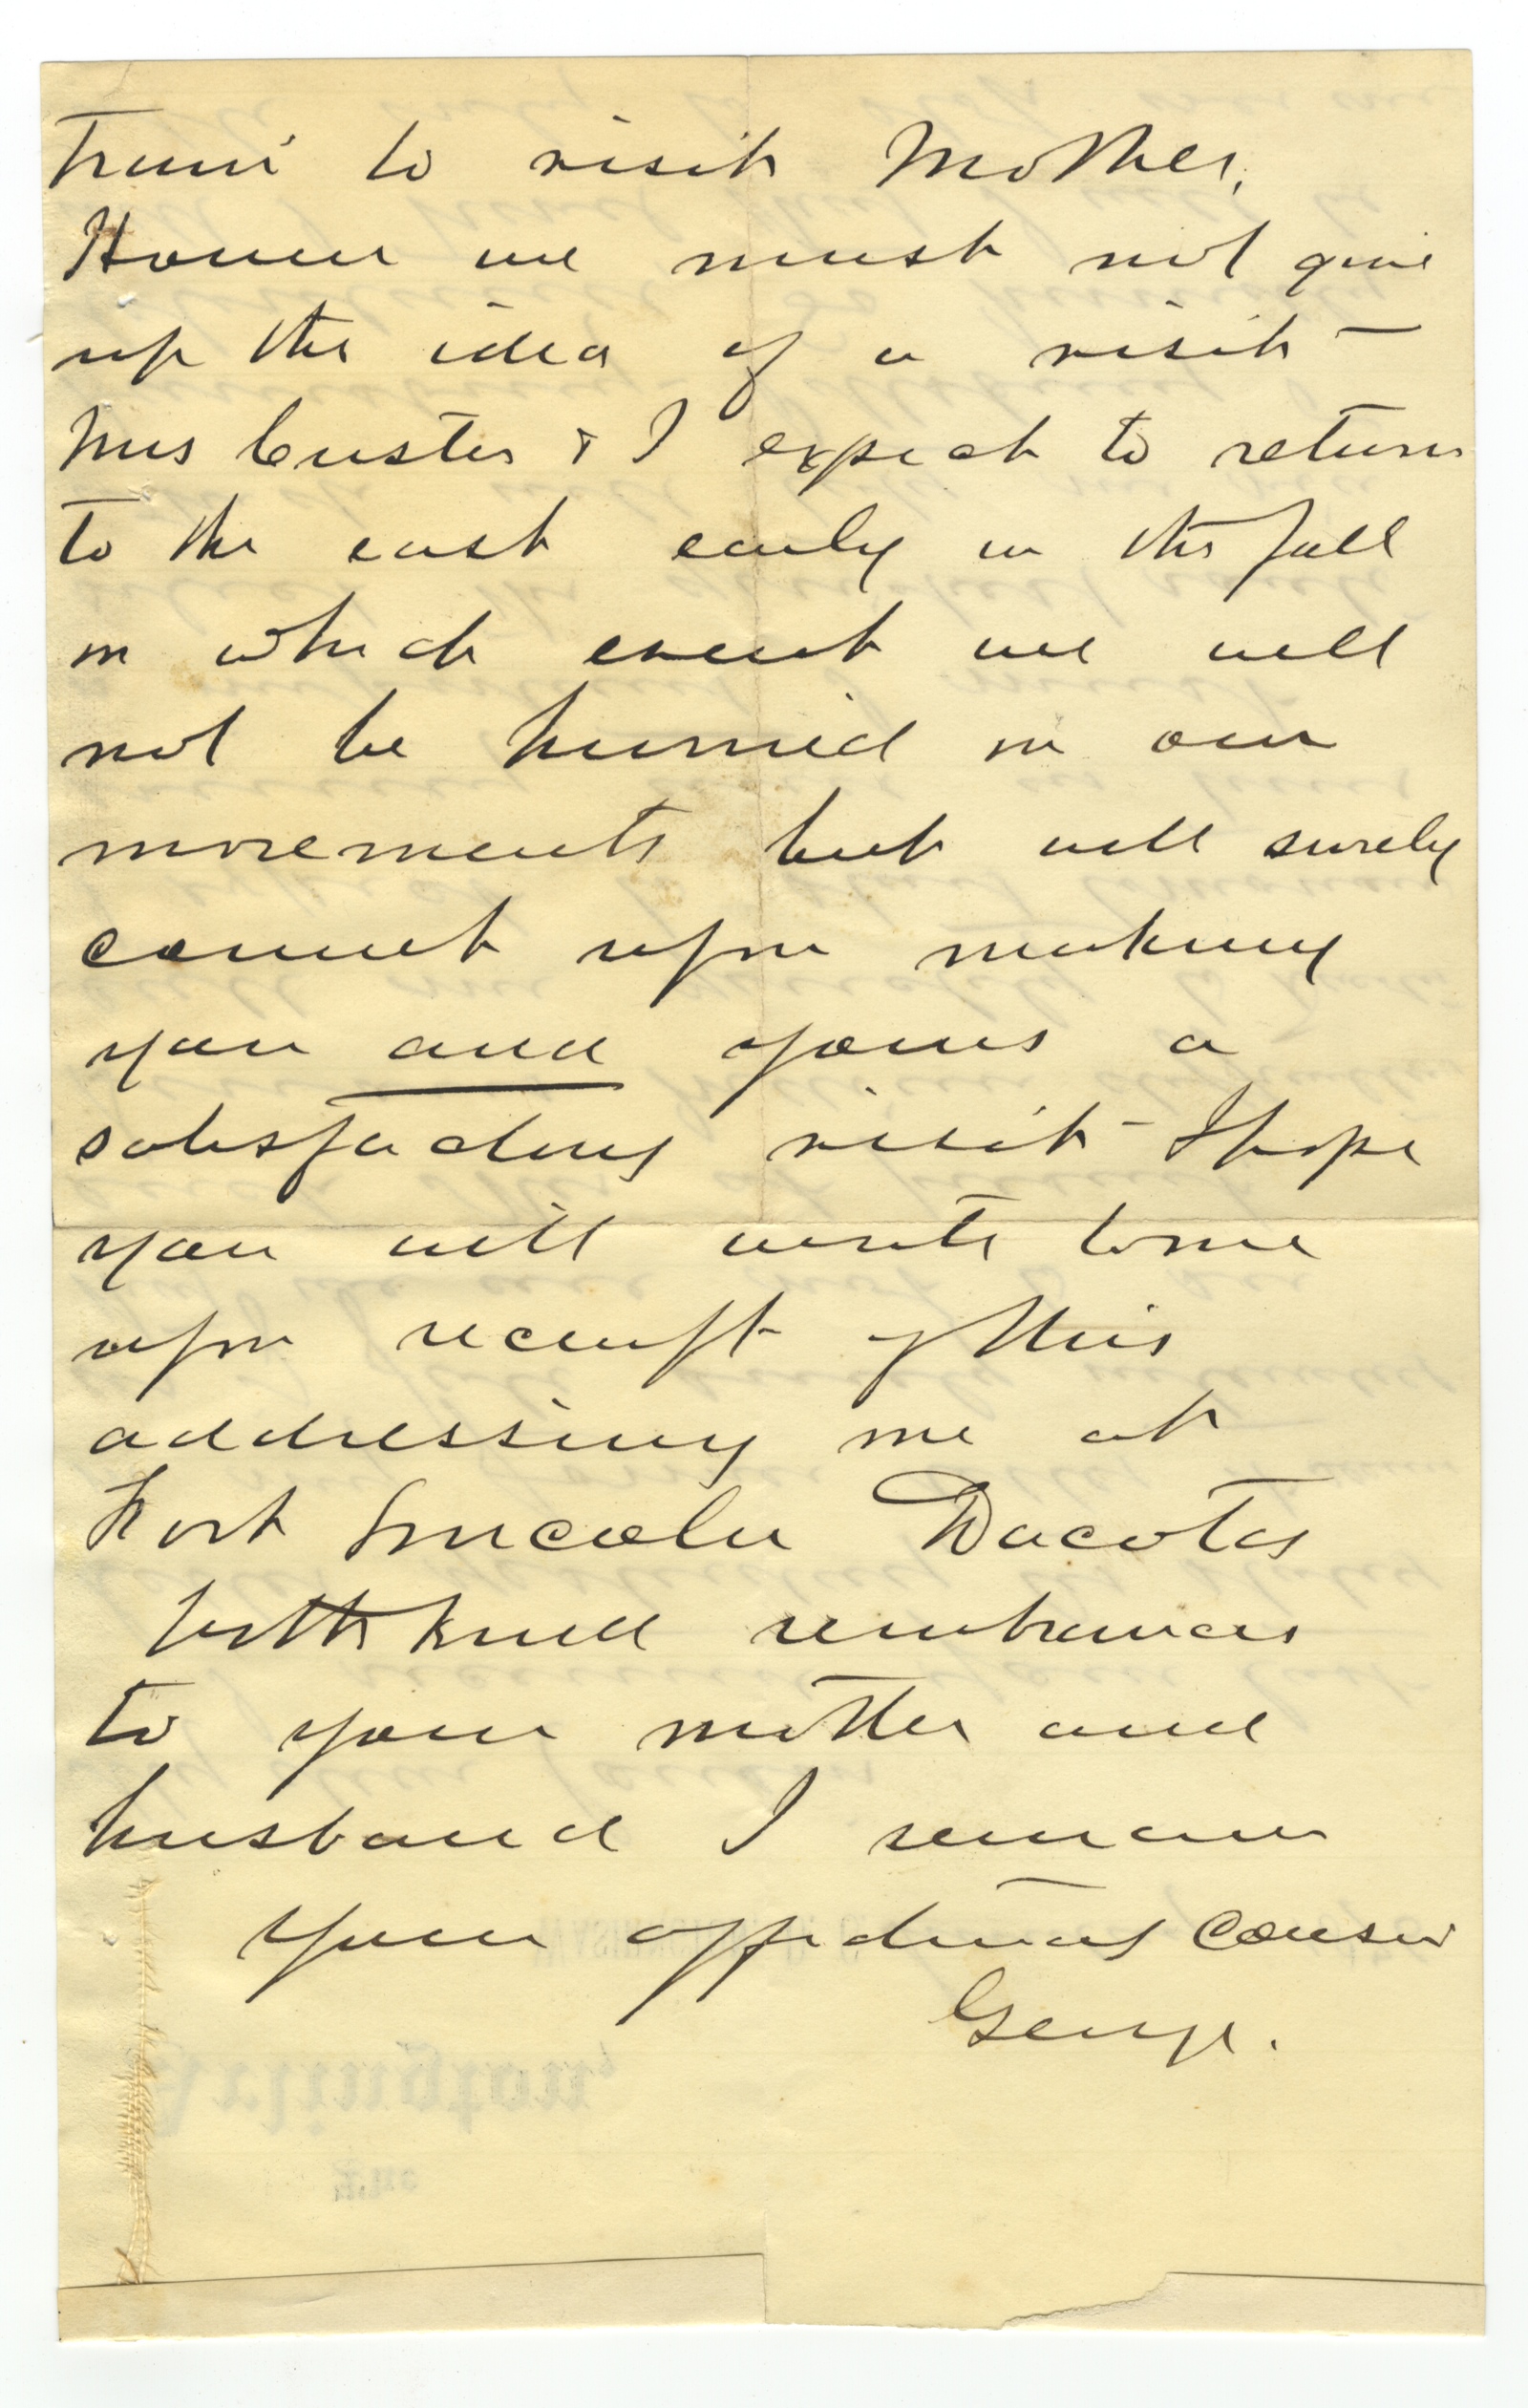 train to visit Mother,
However we must not give
up the idea of a visit –
Mrs Custer & I expect to return
to the east early in the fall
in which event we will
not be hurried in our
movements but will surely
count upon making
you and yours a
satisfactory visit – I hope
you will write to me
upon receipt of this
addressing me at
Fort Lincoln Dacota
With kind
to your mother and
husband I remain
Your affectionate Cousin
George.
Arlington,
THE